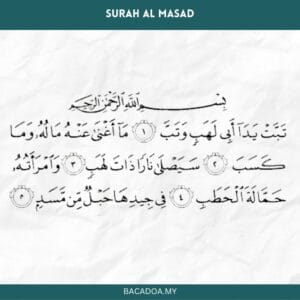 SURAH AL MASAD
بِسْمِ اللَّهِ الرَّحْمَٰنِ الرَّحِيمِ
تَبَّتْ يَدَا أَبِي لَهَبٍ وَتَبَّ ١ مَا أَغْنَىٰ عَنْهُ مَالُهُ وَمَا
كَسَبَ ٢ سَيَصْلَىٰ نَارًا ذَاتَ لَهَبٍ ٣ وَامْرَأَتُهُ
حَمَّالَةَ الْحَطَبِ ٤ فِي جِيدِهَا حَبْلٌ مِّن مَّسَدٍ ٥
BACADOA.MY